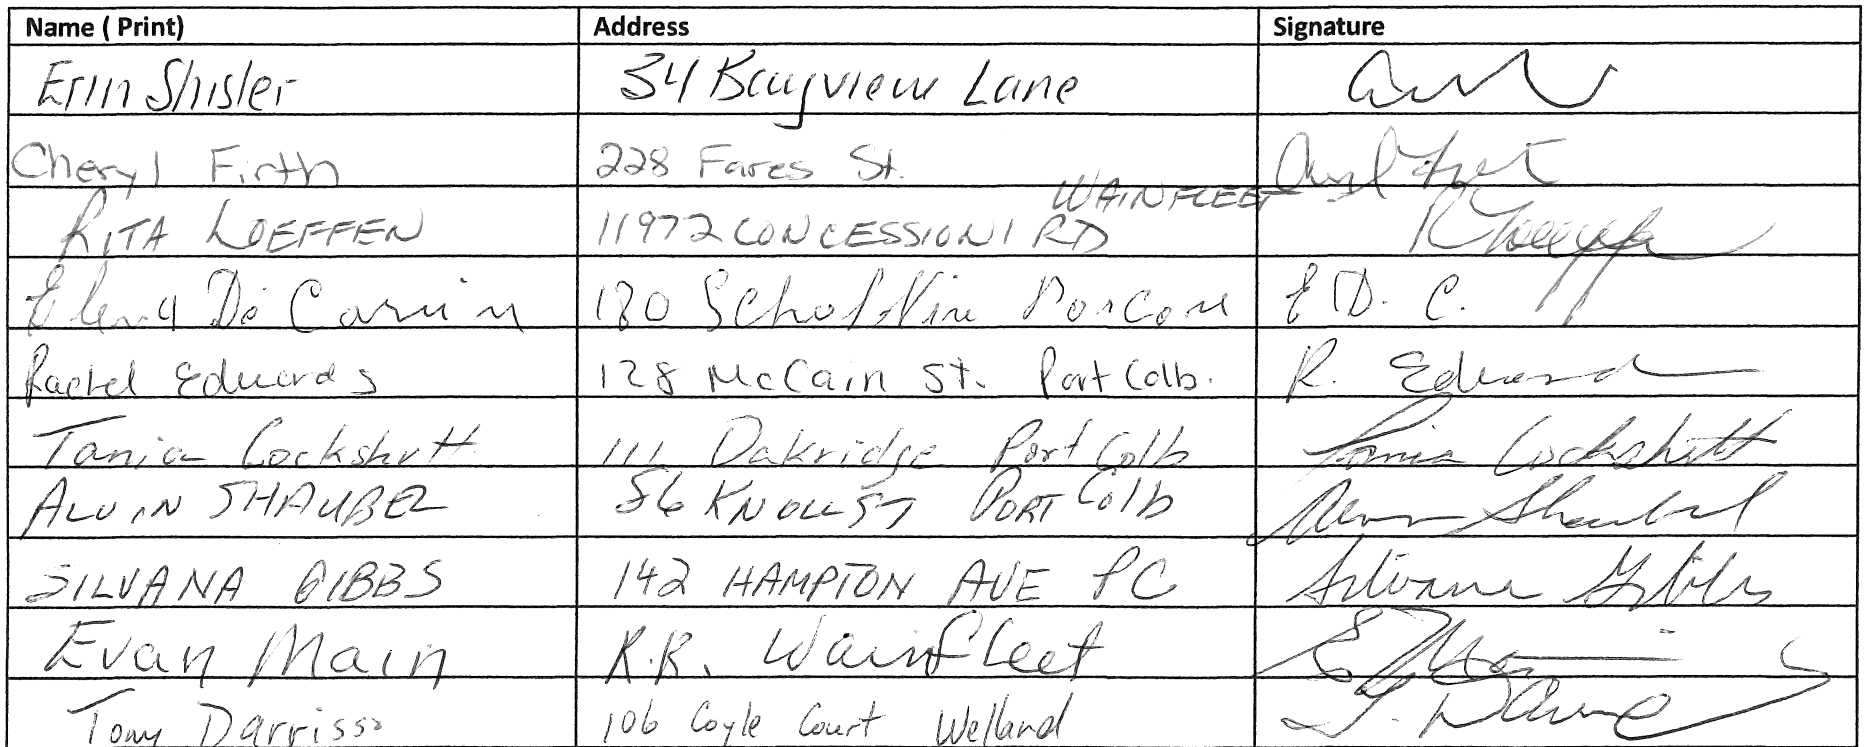 Name ( Print) Address Signature
Erin Shisler 34 Bayview Lane
Cheryl Firth 228 Fares St.
WAINFLEET
RITA LOEFFEN 11972 CONCESSION 1 RD
Elena Di 180 E D. C.
Rachel Edwards 128 McCain St. Port Colb. R. Edward
Tania Cockshutt 111 Oakridge Port Colb Tania Cockshutt
ALVIN SHAUBEL 86 KNOLL ST PORT Colb Shaubel
SILVANA GIBBS 142 HAMPTON AVE PC Silvana Gibbs
Evan Main R.R. Wainfleet
Tony Darrisso 106 Coyle Court Welland